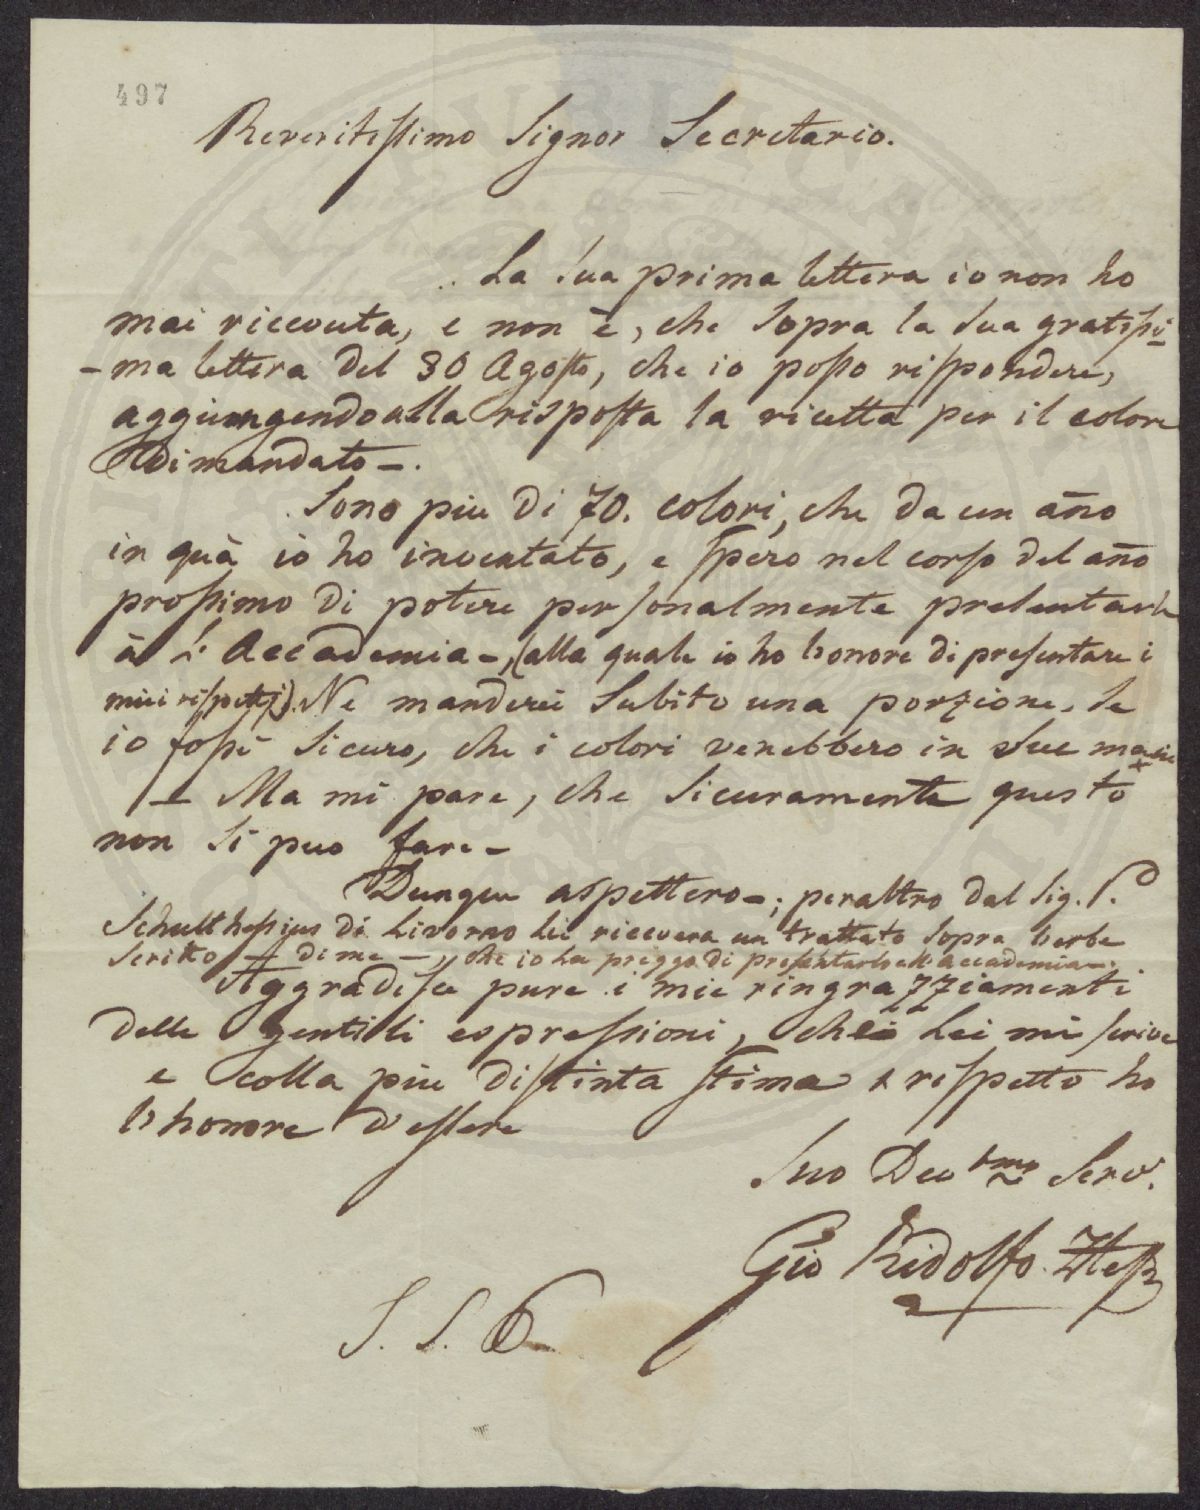 497
Reveritissimo Signor Secretario.
La Sua prima lettera io non ho
mai riccevuta, e non è, che Sopra la Sua gratissi
-ma lettera del 30 Agosto, che io posso rispondere,
aggiungendo alla risposta la ricetta per il colore
dimandato -.
Sono piu di 70. colori, che da un año
in quà io ho inventato, e spero nel corso del año
prossimo di potere personalmente presentarle
à L' Accademia -, (alla quale io ho l'honore di presentare i
miei rispetti). Ne manderei Subito una porzione, Se
io fossi Sicuro, che i colori venebbero in Sue mani
- Ma mi pare, che Sicuramente questo
non Si puo fare -
Dunque aspettero -; peraltro dal Sig.
Schulthesius di Livorno Lei riccevera un trattato Sopra l'erbe
Scritto - di me -, che io La preggo di presentarlo all accademia -.
Aggradisce pure i miei ringrazziamenti
delle gentili espressioni, che Lei mi scrive
e colla piu distinta stima e rispetto ho
l'honore d'essere
Suo Devtmo Serv.
Gio Ridolfo Hess
S. S.